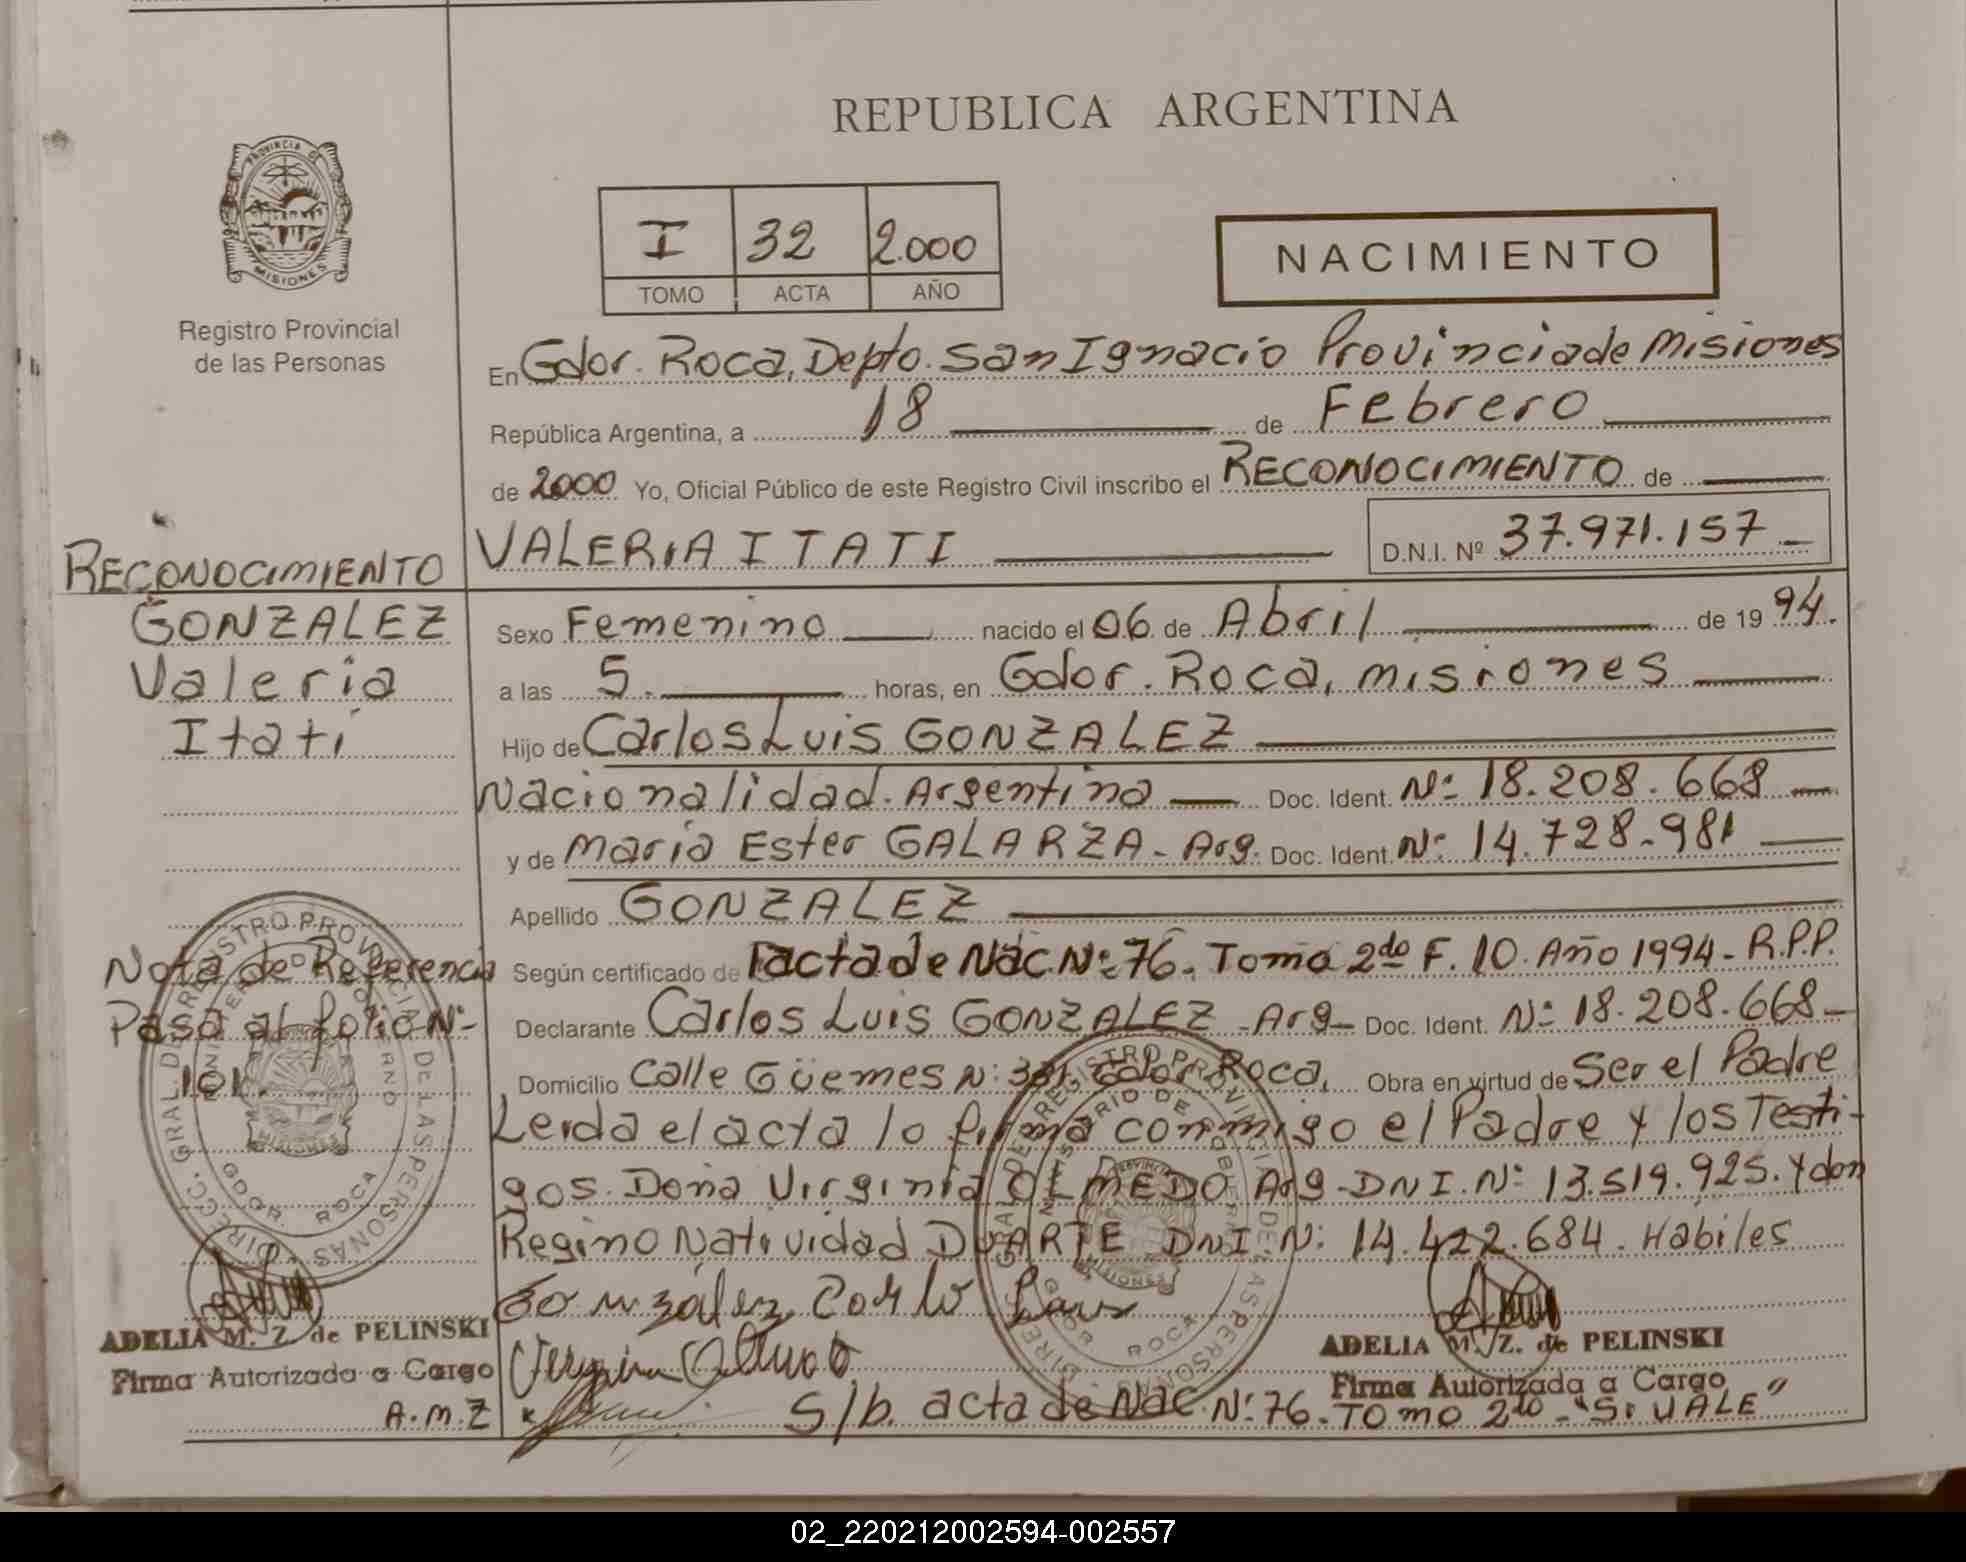 REPUBLICA ARGENTINA
PROVINCIA DE
MISIONES
Registro Provincial
de las Personas
I 32 2.000
TOMO ACTA AÑO
NACIMIENTO
En Gdor. Roca, Depto. San Ignacio Provincia de Misiones
República Argentina, a 18 de Febrero
de 2000 Yo, Oficial Público de este Registro Civil inscribo el RECONOCIMIENTO de
VALERIA ITATI D.N.I. Nº 37.971.157
RECONOCIMIENTO
GONZALEZ
Valeria
Itatí
Sexo Femenino nacido el 06 de Abril de 1994.
a las 5. horas, en Gdor. Roca, misiones
Hijo de Carlos Luis GONZALEZ
Nacionalidad. Argentina Doc. Ident. Nº 18.208.668
y de María Ester GALARZA - Arg. Doc. Ident. Nº 14.728.981
Apellido GONZALEZ
Según certificado de acta de Nac. Nº 76. Tomo 2do F. 10. Año 1994 - R.P.P.
Declarante Carlos Luis GONZALEZ - Arg - Doc. Ident. Nº 18.208.668
Domicilio Calle Güemes Nº Gdor Roca, Obra en virtud de Ser el Padre
Leida el acta lo firma conmigo el Padre y los Testi-
gos. Doña Virginia OLMEDO Arg - DNI. Nº 13.519.925. y don
Regino Natividad DUARTE DNI. Nº 14.422.684. Habiles
Nota de Referencia
Pasa al folio Nº
101.
DIRECC. GRAL. DEL REGISTRO PROVINCIAL DE LAS PERSONAS
MINISTERIO DE GOBIERNO
GDOR. ROCA
MISIONES
ADELIA M. Z. de PELINSKI
Firma Autorizada a Cargo
A.M.Z
González Carlo Luis
Virginia Olmedo
DIRECC. GRAL. DEL REGISTRO PROVINCIAL DE LAS PERSONAS
MINISTERIO DE GOBIERNO
GDOR. ROCA
MISIONES
ADELIA M. Z. de PELINSKI
Firma Autorizada a Cargo
S/b. acta de Nac. Nº 76 - TOMO 2do - "SI VALE"
02_220212002594-002557